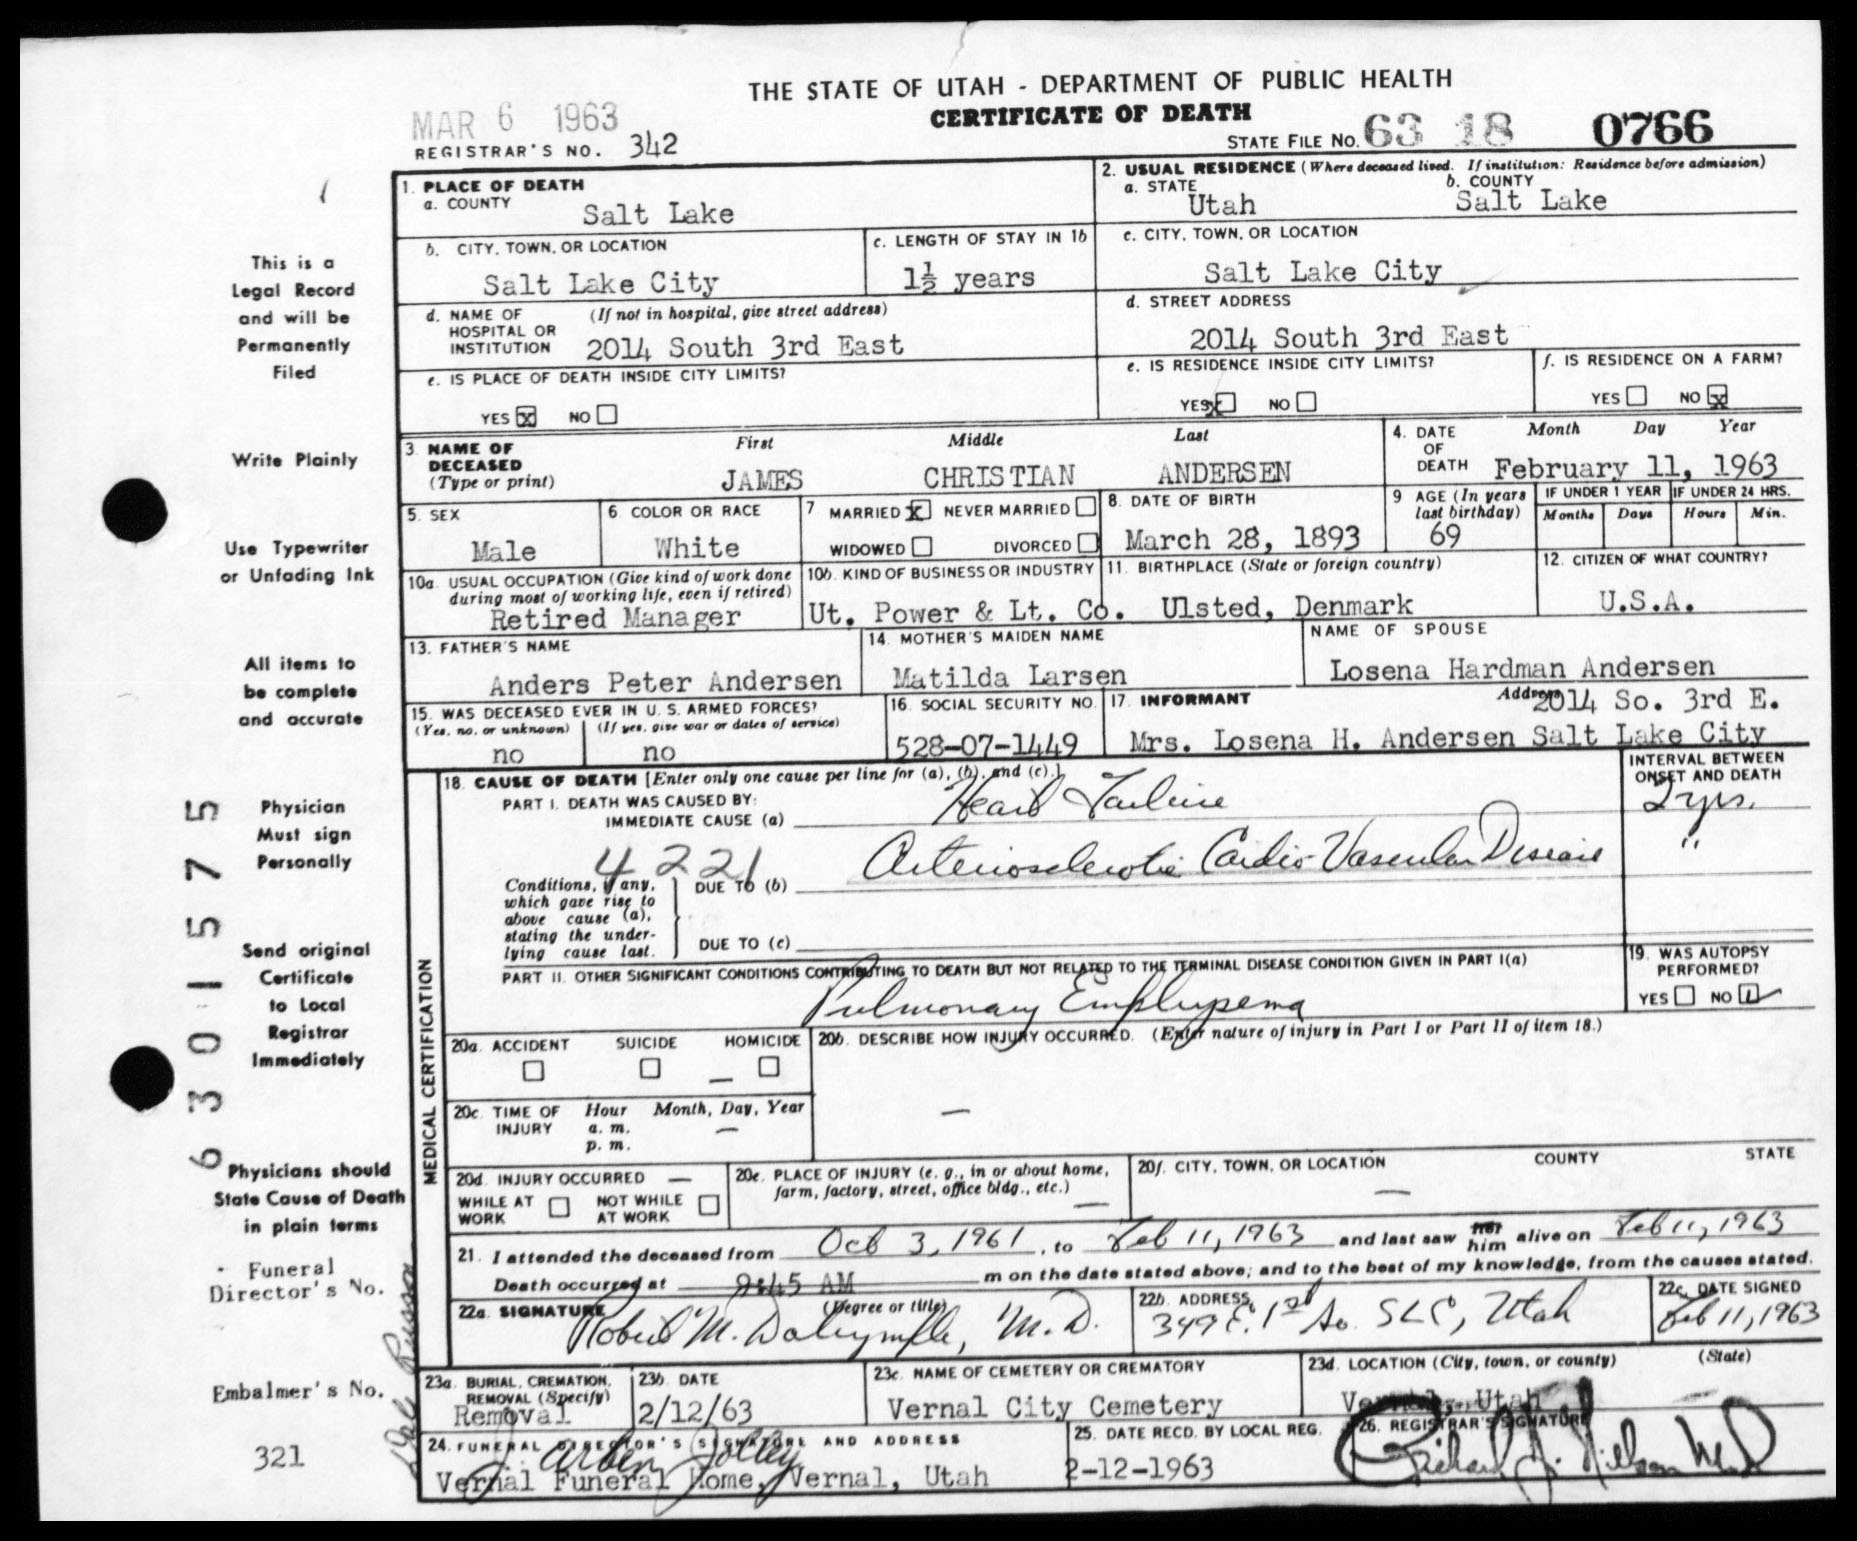 THE STATE OF UTAH - DEPARTMENT OF PUBLIC HEALTH
CERTIFICATE OF DEATH
MAR 6 1963
REGISTRAR'S NO. 342
STATE FILE NO. 63 18 0766
1. PLACE OF DEATH
a. COUNTY
Salt Lake
2. USUAL RESIDENCE (Where deceased lived. If institution: Residence before admission)
a. STATE
Utah
b. COUNTY
Salt Lake
b. CITY, TOWN, OR LOCATION
Salt Lake City
c. LENGTH OF STAY IN 1b
1½ years
c. CITY, TOWN, OR LOCATION
Salt Lake City
d. NAME OF HOSPITAL OR INSTITUTION
(If not in hospital, give street address)
2014 South 3rd East
d. STREET ADDRESS
2014 South 3rd East
e. IS PLACE OF DEATH INSIDE CITY LIMITS?
YES x NO
e. IS RESIDENCE INSIDE CITY LIMITS?
YES x NO
f. IS RESIDENCE ON A FARM?
YES NO x
3. NAME OF DECEASED
(Type or print)
First Middle Last
JAMES CHRISTIAN ANDERSEN
4. DATE OF DEATH
Month Day Year
February 11, 1963
5. SEX
Male
6 COLOR OR RACE
White
7 MARRIED x NEVER MARRIED
WIDOWED DIVORCED
8. DATE OF BIRTH
March 28, 1893
9 AGE (In years last birthday)
69
IF UNDER 1 YEAR
Months Days
IF UNDER 24 HRS.
Hours Min.
10a. USUAL OCCUPATION (Give kind of work done during most of working life, even if retired)
Retired Manager
10b. KIND OF BUSINESS OR INDUSTRY
Ut. Power & Lt. Co.
11. BIRTHPLACE (State or foreign country)
Ulsted, Denmark
12. CITIZEN OF WHAT COUNTRY?
U.S.A.
13. FATHER'S NAME
Anders Peter Andersen
14. MOTHER'S MAIDEN NAME
Matilda Larsen
NAME OF SPOUSE
Losena Hardman Andersen
15. WAS DECEASED EVER IN U. S. ARMED FORCES?
(Yes, no, or unknown) (If yes, give war or dates of service)
no no
16. SOCIAL SECURITY NO.
528-07-1449
17. INFORMANT
Address
2014 So. 3rd E.
Mrs. Losena H. Andersen Salt Lake City
MEDICAL CERTIFICATION
18. CAUSE OF DEATH [Enter only one cause per line for (a), (b), and (c).]
PART I. DEATH WAS CAUSED BY:
IMMEDIATE CAUSE (a) Heart Failure
INTERVAL BETWEEN ONSET AND DEATH
2 yrs.
4221
Conditions, if any, which gave rise to above cause (a), stating the underlying cause last.
DUE TO (b) Arteriosclerotic Cardio-Vascular Disease
"
DUE TO (c)
PART II. OTHER SIGNIFICANT CONDITIONS CONTRIBUTING TO DEATH BUT NOT RELATED TO THE TERMINAL DISEASE CONDITION GIVEN IN PART I(a)
Pulmonary Emphysema
19. WAS AUTOPSY PERFORMED?
YES NO
20a. ACCIDENT SUICIDE HOMICIDE
—
20b. DESCRIBE HOW INJURY OCCURRED. (Enter nature of injury in Part I or Part II of item 18.)
—
20c. TIME OF INJURY
Hour Month, Day, Year
a. m.
p. m.
—
20d. INJURY OCCURRED —
WHILE AT WORK
NOT WHILE AT WORK
20e. PLACE OF INJURY (e. g., in or about home, farm, factory, street, office bldg., etc.)
—
20f. CITY, TOWN, OR LOCATION COUNTY STATE
—
21. I attended the deceased from Oct 3, 1961, to Feb 11, 1963 and last saw her him alive on Feb 11, 1963
Death occurred at 9:45 AM m on the date stated above; and to the best of my knowledge, from the causes stated.
22a. SIGNATURE (Degree or title)
Robert M. Dalrymple, M.D.
22b. ADDRESS
349 E. 1st So. SLC, Utah
22c. DATE SIGNED
Feb 11, 1963
23a. BURIAL, CREMATION, REMOVAL (Specify)
Removal
23b. DATE
2/12/63
23c. NAME OF CEMETERY OR CREMATORY
Vernal City Cemetery
23d. LOCATION (City, town, or county) (State)
Vernal, Utah
24. FUNERAL DIRECTOR'S SIGNATURE AND ADDRESS
J. Arben Jolley
Vernal Funeral Home, Vernal, Utah
25. DATE RECD. BY LOCAL REG.
2-12-1963
26. REGISTRAR'S SIGNATURE
Richard J. Nielson MD
This is a
Legal Record
and will be
Permanently
Filed
Write Plainly
Use Typewriter
or Unfading Ink
All items to
be complete
and accurate
Physician
Must sign
Personally
Send original
Certificate
to Local
Registrar
Immediately
Physicians should
State Cause of Death
in plain terms
Funeral
Director's No.
Embalmer's No.
321
Dale Russon
6 3 0 1 5 7 5